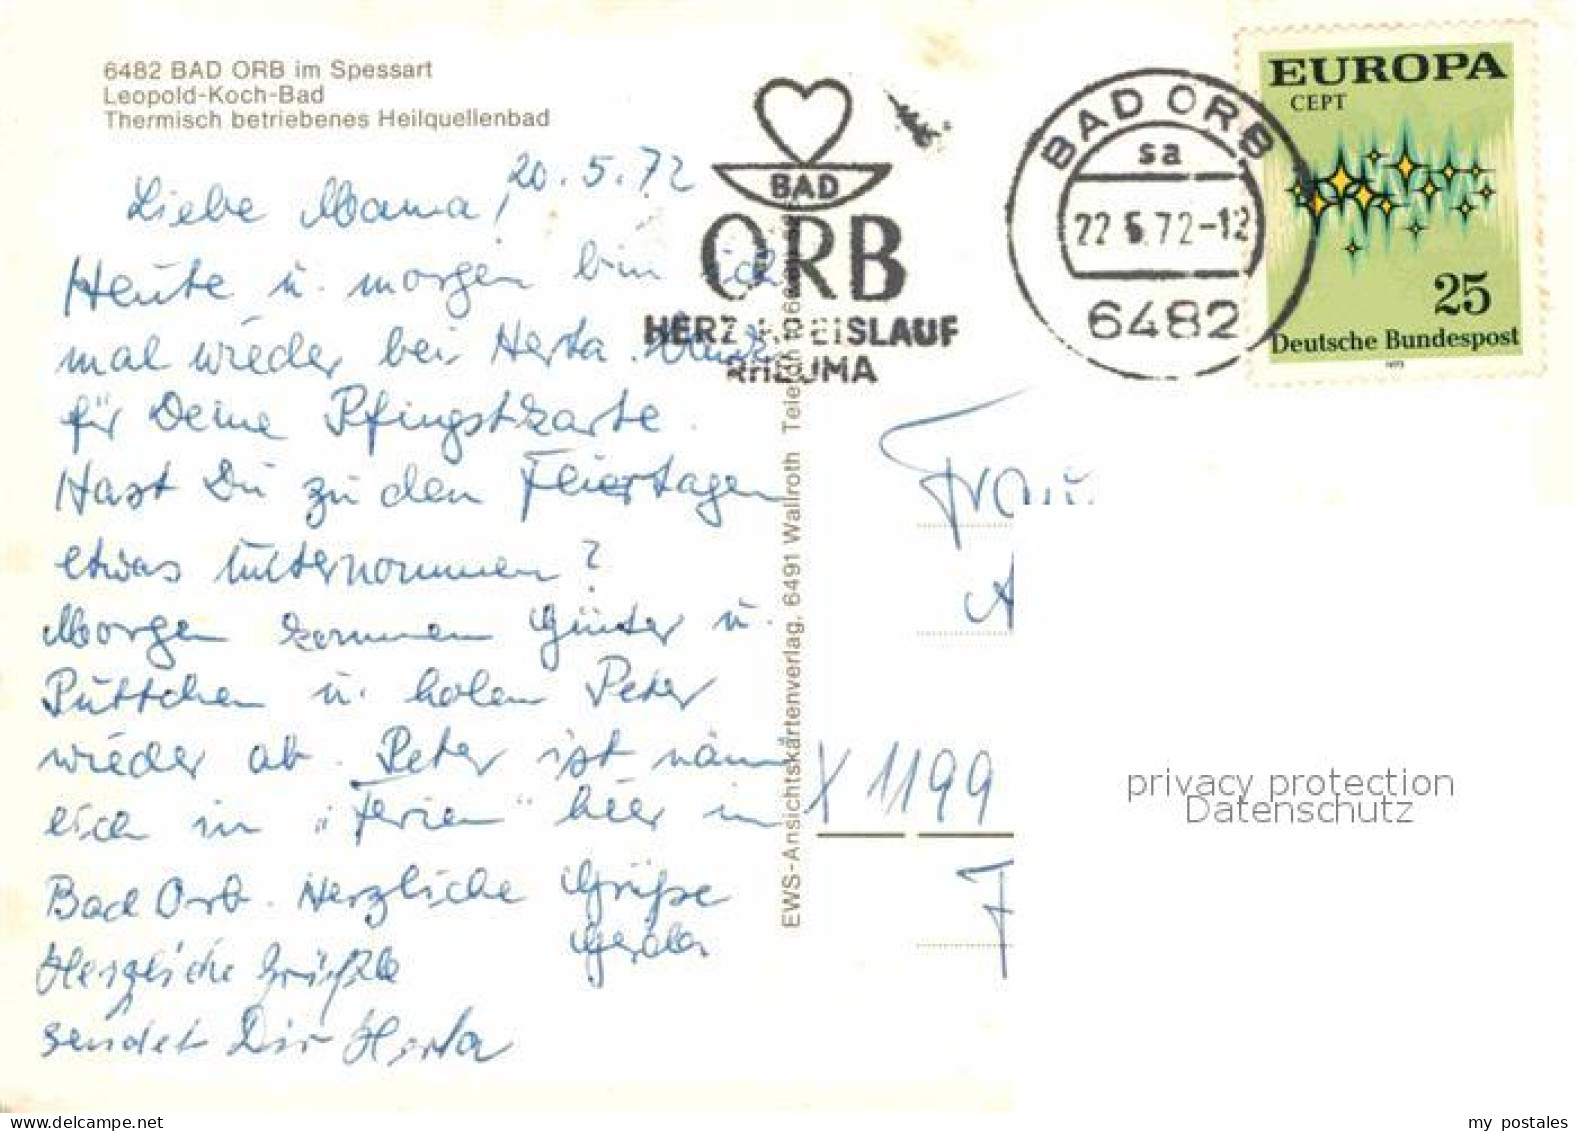 6482 BAD ORB im Spessart
Leopold-Koch-Bad
Thermisch betriebenes Heilquellenbad
20.5.72
Liebe Mama,
Heute u. morgen bin ich
mal wieder bei Herta. Dank
für Deine Pfingstkarte.
Hast Du zu den Feiertagen
etwas unternommen?
Morgen kommen Günter u.
Püttchen u. holen Peter
wieder ab. Peter ist näm
lich in "Ferien" hier in
Bad Orb. Herzliche Grüße
Gerda
Herzliche Grüße
sendet Dir Herta
BAD
ORB
HERZ KREISLAUF
RHEUMA
BAD ORB
sa
22.5.72-12
6482
EUROPA
CEPT
25
Deutsche Bundespost
1972
EWS-Ansichtskartenverlag, 6491 Wallroth
Frau
A
X 1199
privacy protection
Datenschutz
my postales
www.delcampe.net